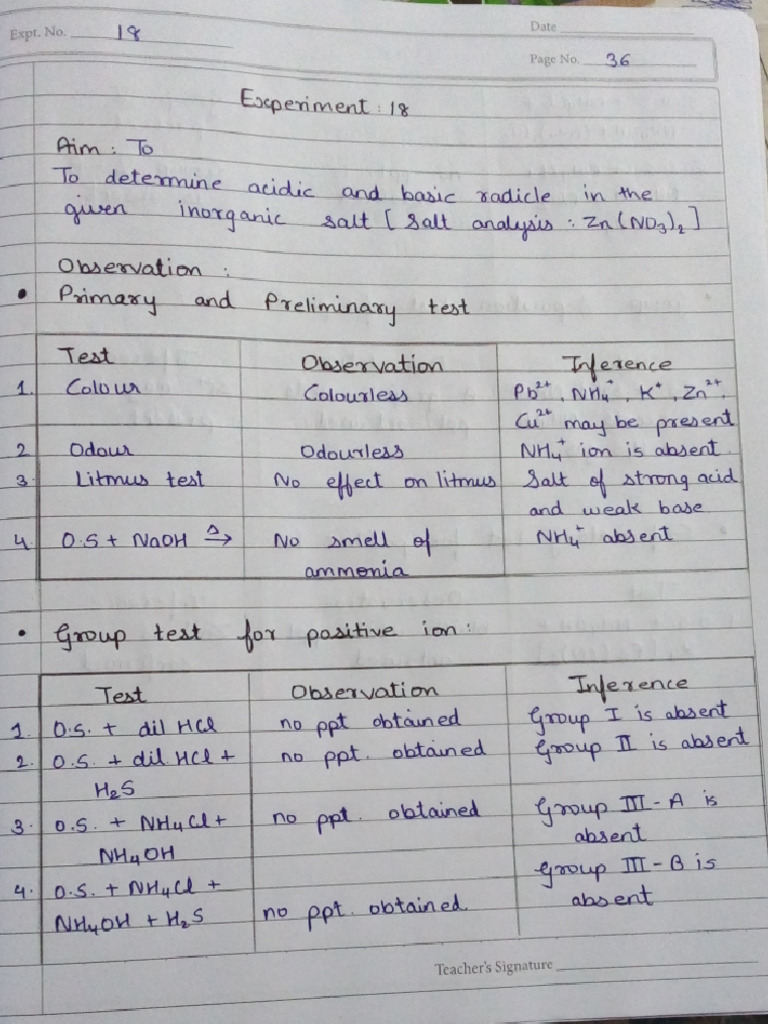 Expt. No. 18
Date
Page No. 36
Experiment : 18
Aim : To
To determine acidic and basic radicle in the
given inorganic salt [ Salt analysis : Zn(NO3)2 ]
Observation :
• Primary and Preliminary test
Test Observation Inference
1. Colour Colourless Pb²⁺, NH4⁺, K⁺, Zn²⁺,
Cu²⁺ may be present
2 Odour Odourless NH4⁺ ion is absent.
3. Litmus test No effect on litmus Salt of strong acid
and weak base
4. O.S + NaOH △→ No smell of NH4⁺ absent
ammonia
• Group test for positive ion :
Test Observation Inference
1. O.S. + dil HCl no ppt obtained Group I is absent
2. O.S. + dil. HCl + no ppt. obtained Group II is absent
H2S
3. O.S. + NH4Cl + no ppt. obtained Group III - A is
NH4OH absent
4. O.S. + NH4Cl + Group III - B is
NH4OH + H2S no ppt. obtained absent
Teacher's Signature